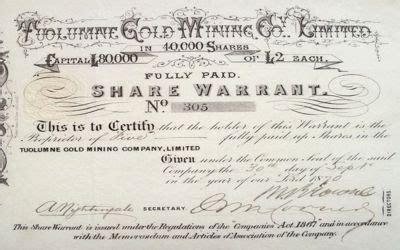 TUOLUMNE GOLD MINING COY. LIMITED
IN 40,000 SHARES
CAPITAL £80000 OF £2 EACH.
FULLY PAID.
SHARE WARRANT.
No 305
This is to Certify that the holder of this Warrant is the
Proprietor of Five fully paid up Shares in the
TUOLUMNE GOLD MINING COMPANY, LIMITED
Given under the Common Seal of the said
Company the 30 day of Sept
in the year of our Lord 187
A. Nightingale SECRETARY.
DIRECTORS
This Share Warrant is issued under the Regulations of the "Companies' Act 1867" and in accordance
with the Memorandum and Articles of Association of the Company.